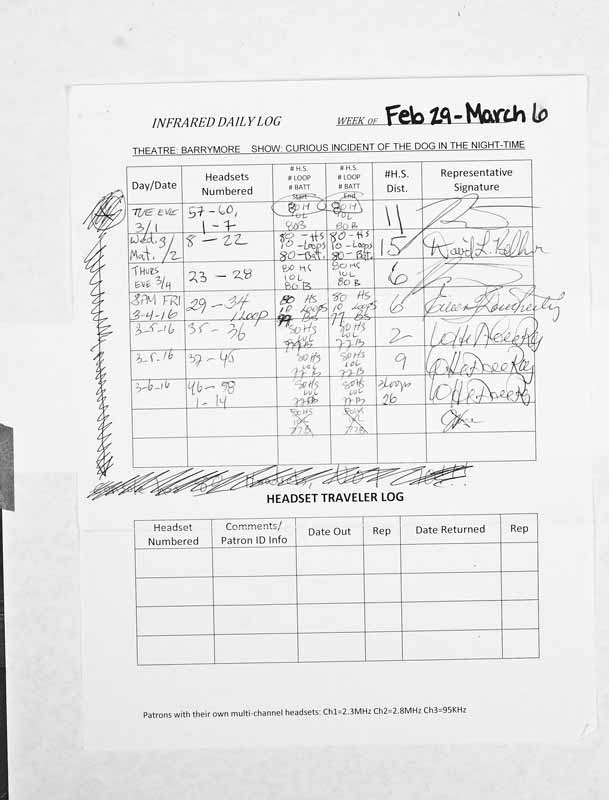 INFRARED DAILY LOG WEEK OF Feb 29-March 6
THEATRE: BARRYMORE SHOW: CURIOUS INCIDENT OF THE DOG IN THE NIGHT-TIME
Day/Date Headsets Numbered # H.S. # LOOP # BATT Start # H.S. # LOOP # BATT End #H.S. Dist. Representative Signature
TUE EVE 3/1 57-60, 1-7 80H 10L 80B 80H 10L 80B 11
Wed. 3/2 Mat. 8-22 80-HS 10-Loops 80-Bat. 80-HS 10-Loops 80-Bat. 15 David L.
THURS EVE 3/4 23-28 80 HS 10L 80B 80 HS 10L 80B 6
8PM FRI 3-4-16 29-34 1 Loop 80 HS 10 Loops 77 BS 80 HS 10 Loops 77 BS 6 Eileen Dougherty
3-5-16 35-36 80HS 10L 77B 80HS 10L 77B 2
3.5.16 37-45 80HS 10L 77B 80HS 10L 77B 9
3-6-16 46-58 1-14 80HS 10L 77B 80HS 10L 77B 3 Loops 26
80HS 77B 80H 77B
HEADSET TRAVELER LOG
Headset Numbered Comments/ Patron ID Info Date Out Rep Date Returned Rep
Patrons with their own multi-channel headsets: Ch1=2.3MHz Ch2=2.8MHz Ch3=95KHz